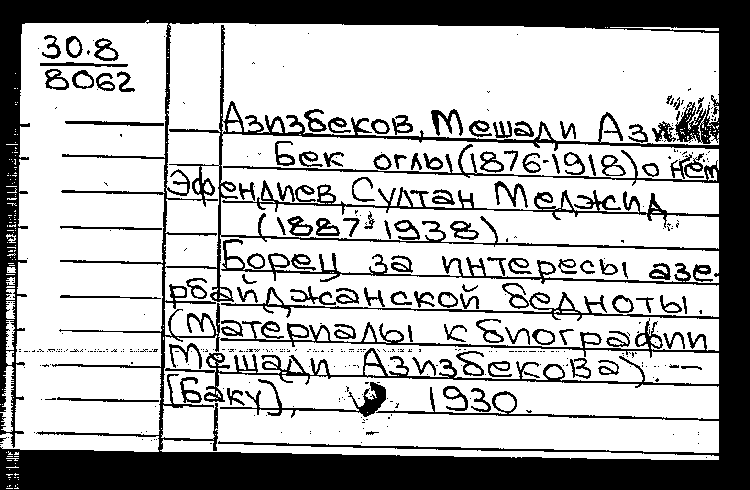 30.8
8062
Азизбеков, Мешади Ази
Бек оглы (1876-1918) о нем
Эфендиев, Султан Меджид
(1887-1938).
Борец за интересы азе-
рбайджанской бедноты.
(Материалы к биографии
Мешади Азизбекова). —
[Баку], 1930.